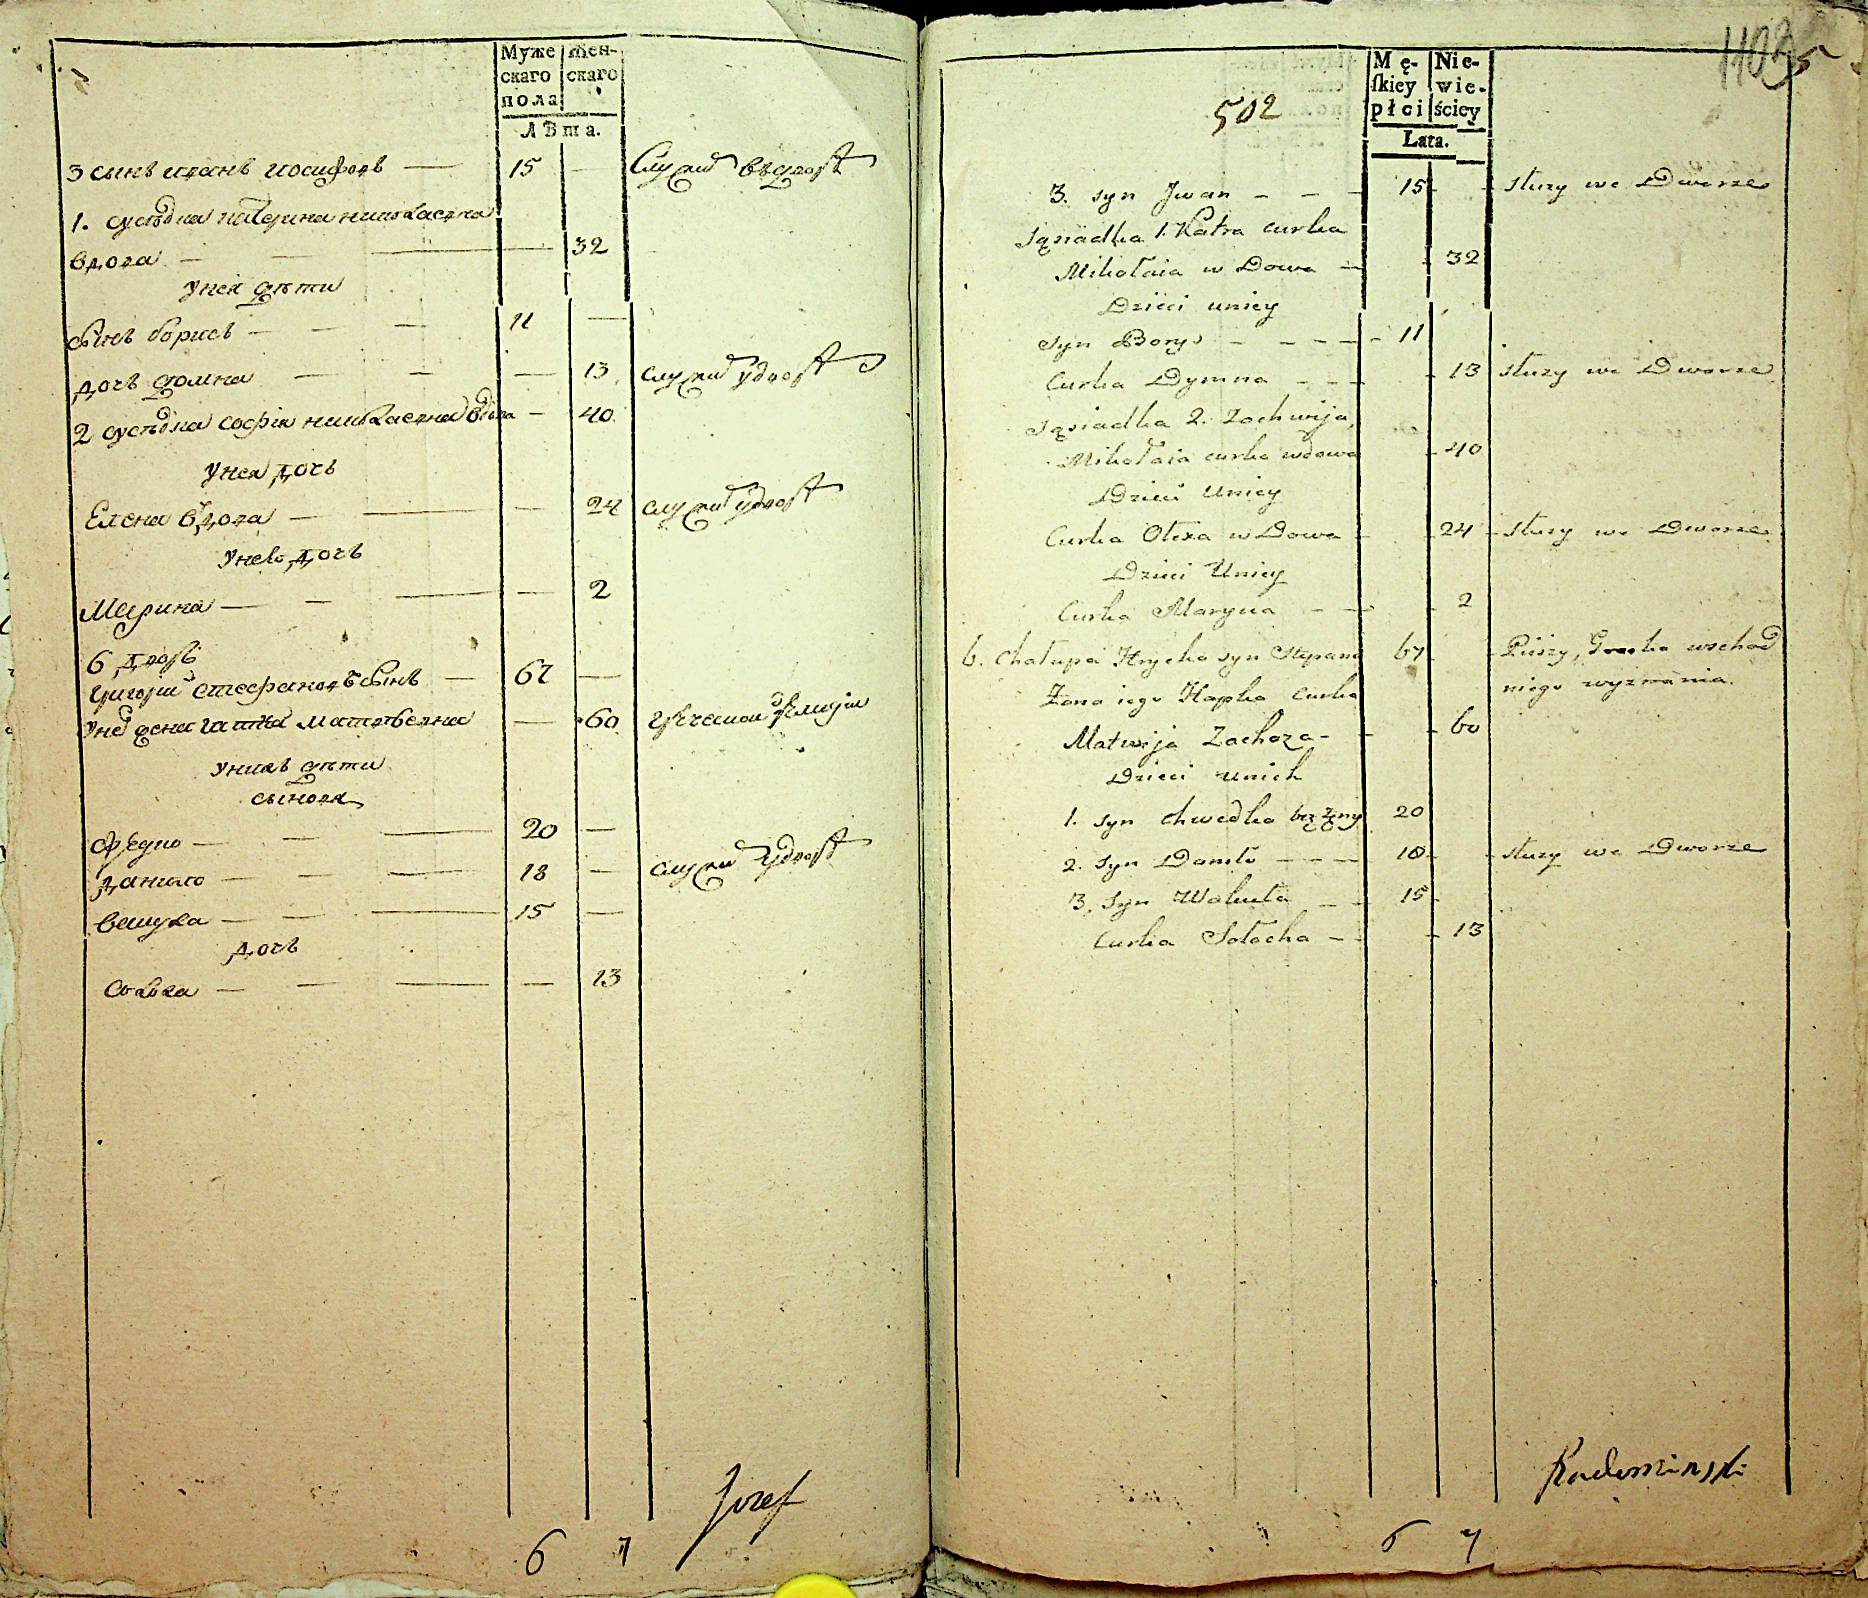 Муже
скаго
пола
Жен-
скаго
Лѣта.
3 сынъ иванъ иосифовъ — 15 —
1. сусѣдка катерина николаевна
вдова — — — 32
унея дѣти
сынъ борисъ — — — 11 —
дочь домна — — — 13
2 сусѣдка софія николаевна вдова — 40
унея дочь
Елена вдова — — — 24
унею дочь
Марина — — — 2
6 дворъ
григорій стефановъ сынъ — 67 —
унево жена гапка матвѣевна — 60
унихъ дѣти
сынова
Федко — — — 20 —
данило — — — 18 —
вакула — — — 15 —
дочь
солоха — — — — 13
6 7
Jozef
502
1103
5
Mę-
skiey
płci
Nie-
wie-
ściey
Lata.
3. syn Jwan — — — 15 - - służy we Dworze
Sąsiadka 1. Katra curka
Mikołaia w Dowa — - 32
Dzieci uniey
syn Borys — — — — 11
Curka Dymna — — — - 13 służy we Dworze
Sąsiadka 2. Zochwija,
Mikołaia curka wdowa - 40
Dzieci Uniey
Curka Olexa w Dowa - - 24 - służy we Dworze
Dzieci Uniey
Curka Maryna — — - 2
6. Chałupa Hryćko syn Stepana 67 - wschod
Żona iego Hapka Curka niego wyznania.
Matwija - - 60
Dzieci unich
1. syn Chwedko bez żony 20
2. syn Daniło — — — 18 - - służy we Dworze
3. Syn Wakuła — — 15 -
Curka Sołocha — - - 13
6 7
Radominski